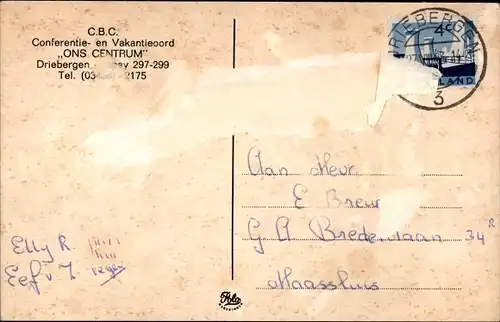 C.B.C.
Conferentie- en Vakantieoord
„ONS CENTRUM"
Driebergen 297-299
Tel. 2175
DRIEBERGEN
4c
LAND
3
Aan Mevr
E Breur
G A Brederolaan 34R
Maassluis
Elly R
Eef v